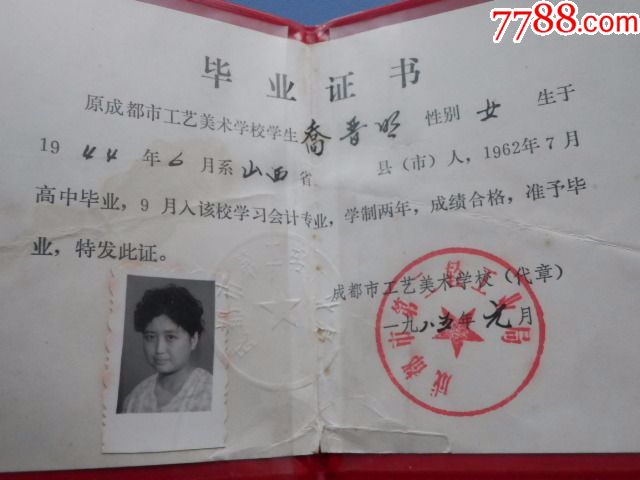 7788.com
毕业证书
原成都市工艺美术学校学生喬晋明性别女生于
1944年6月系山西省 县（市）人，1962年7月
高中毕业，9月入该校学习会计专业，学制两年，成绩合格，准予毕
业，特发此证。
成都市工艺美术学校（代章）
一九八五年元月
成都市第二轻工业局